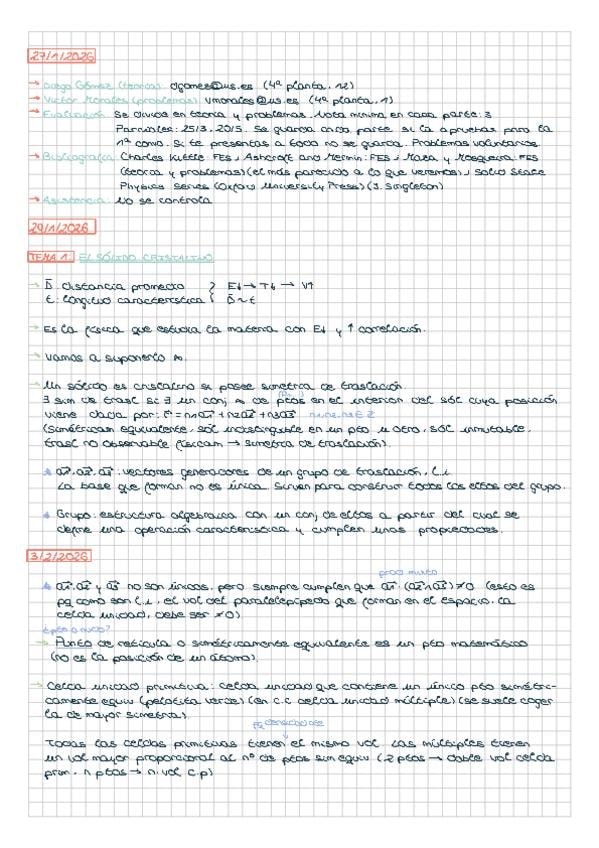 27/1/2026
→ Diego Gómez (teoría): dgomes@us.es (4ª planta, 12)
→ Victor Morales (problemas): vmorales@us.es (4ª planta, 1)
→ Evaluación: Se divide en teoría y problemas. Nota mínima en cada parte: 3
Parciales: 25/3, 20/5. Se guarda cada parte si la apruebas para la
1ª convo. Si te presentas a todo no se guarda. Problemas voluntarios.
→ Bibliografía: Charles Kittle: FES, Ashcroft and Mermin: FES, Maza y Mosqueira: FES
(teoría y problemas)(el más parecido a lo que veremos), Solid State
Physics Series (Oxford University Press)(J. Singleton)
→ Asistencia: No se controla
29/1/2026
TEMA 1: EL SÓLIDO CRISTALINO
→ D̄: distancia promedio } E↓ → T↓ → V↑
ξ: longitud característica } D̄ ~ ξ
→ Es la física que estudia la materia con E↓ y ↑ correlación.
→ Vamos a suponerlo ∞.
→ Un sólido es cristalino si posee simetría de traslación.
∃ sim de trasl si ∃ un conj ∞ de ptos en el interior del sól cuya posición
viene dada por: r⃗ = n1a1⃗ + n2a2⃗ + n3a3⃗ n1,n2,n3 ∈ Z
(Simétricam equivalente, sól indistinguible en un pto u otro, sól inmutable,
trasl no observable físicam → simetría de traslación).
a1⃗, a2⃗, a3⃗: vectores generadores de un grupo de traslación, l.i.
La base que forman no es única. Sirven para construir todos los eltos del grupo.
Grupo: estructura algebraica con un conj de eltos a partir del cual se
define una operación característica y cumplen unas propiedades.
3/2/2026
prod mixto
a1⃗, a2⃗ y a3⃗ no son únicos, pero siempre cumplen que a1⃗ · (a2⃗ ∧ a3⃗) ≠ 0 (esto es
pq como son l.i., el vol del paralelepípedo que forman en el espacio, la
celda unidad, debe ser ≠ 0)
¿pto o nudo?
→ Punto de retícula o simétricamente equivalente es un pto matemático
(no es la posición de un átomo).
→ Celda unidad primitiva: celda unidad que contiene un único pto simétri-
camente equiv (pelotita verde) (en c.c celda unidad múltiple) (se suele coger
la de mayor simetría).
pq densidad cte
Todas las celdas primitivas tienen el mismo vol. Las múltiples tienen
un vol mayor proporcional al nº de ptos sim equiv (2 ptos → doble vol celda
prim. n ptos → n·vol c.p)